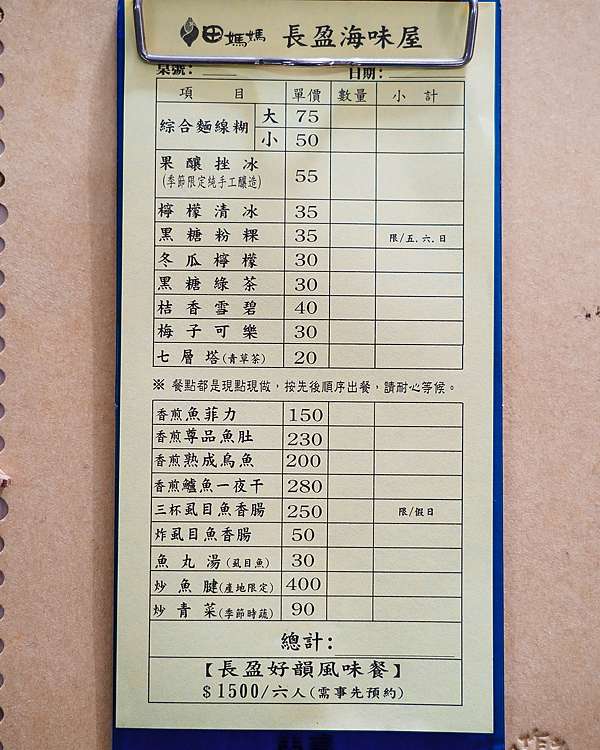 田媽媽 長盈海味屋
桌號: 日期:
項目 單價 數量 小計
綜合麵線糊 大 75
小 50
果釀挫冰 55
(季節限定純手工釀造)
檸檬清冰 35
黑糖粉粿 35 限/五.六.日
冬瓜檸檬 30
黑糖綠茶 30
桔香雪碧 40
梅子可樂 30
七層塔(青草茶) 20
※ 餐點都是現點現做，按先後順序出餐，請耐心等候。
香煎魚菲力 150
香煎尊品魚肚 230
香煎熟成烏魚 200
香煎鱸魚一夜干 280
三杯虱目魚香腸 250 限/假日
炸虱目魚香腸 50
魚丸湯(虱目魚) 30
炒魚腱(產地限定) 400
炒青菜(季節時蔬) 90
總計:
【長盈好韻風味餐】
$1500/六人(需事先預約)